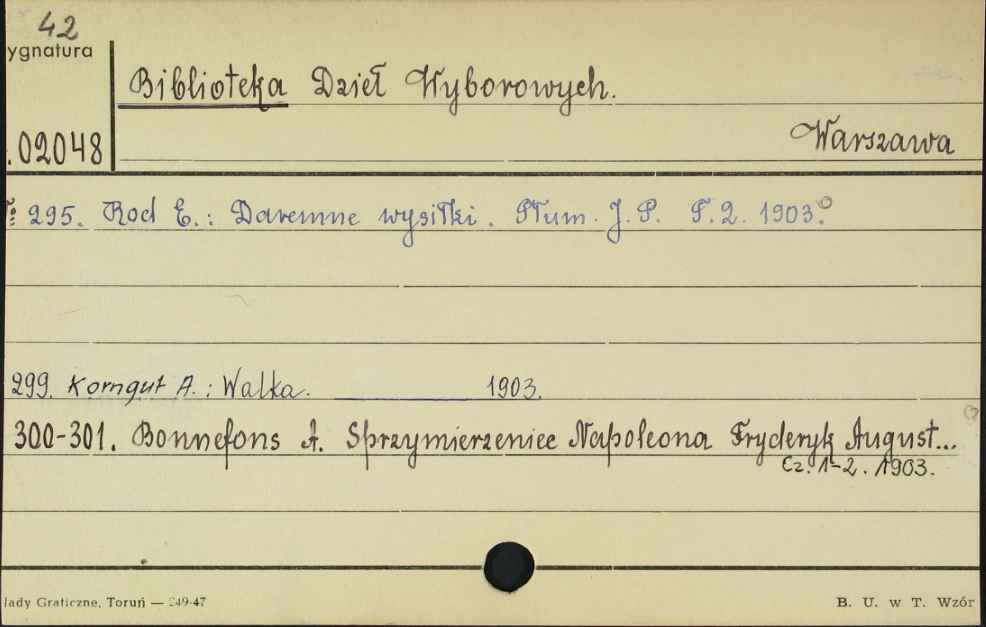 42
ygnatura
Biblioteka Dzieł Wyborowych.
.02048
Warszawa
№ 295. Rod E.: Daremne wysiłki. Tłum. J. P. T. 2. 1903.
299. Korngut A.: Walka. 1903.
300-301. Bonnefons A. Sprzymierzeniec Napoleona Fryderyk August...
Cz. 1-2. 1903.
łady Graficzne, Toruń — 249-47
B. U. w T. Wzór